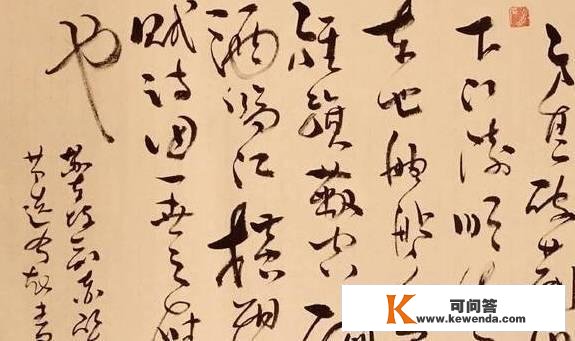 方其破荆
下江陵顺流
东也舳舻千
旌旗蔽空酾
酒临江横槊
赋诗固一世之雄
也
苏东坡前赤壁
K 可问答
www.kewenda.com